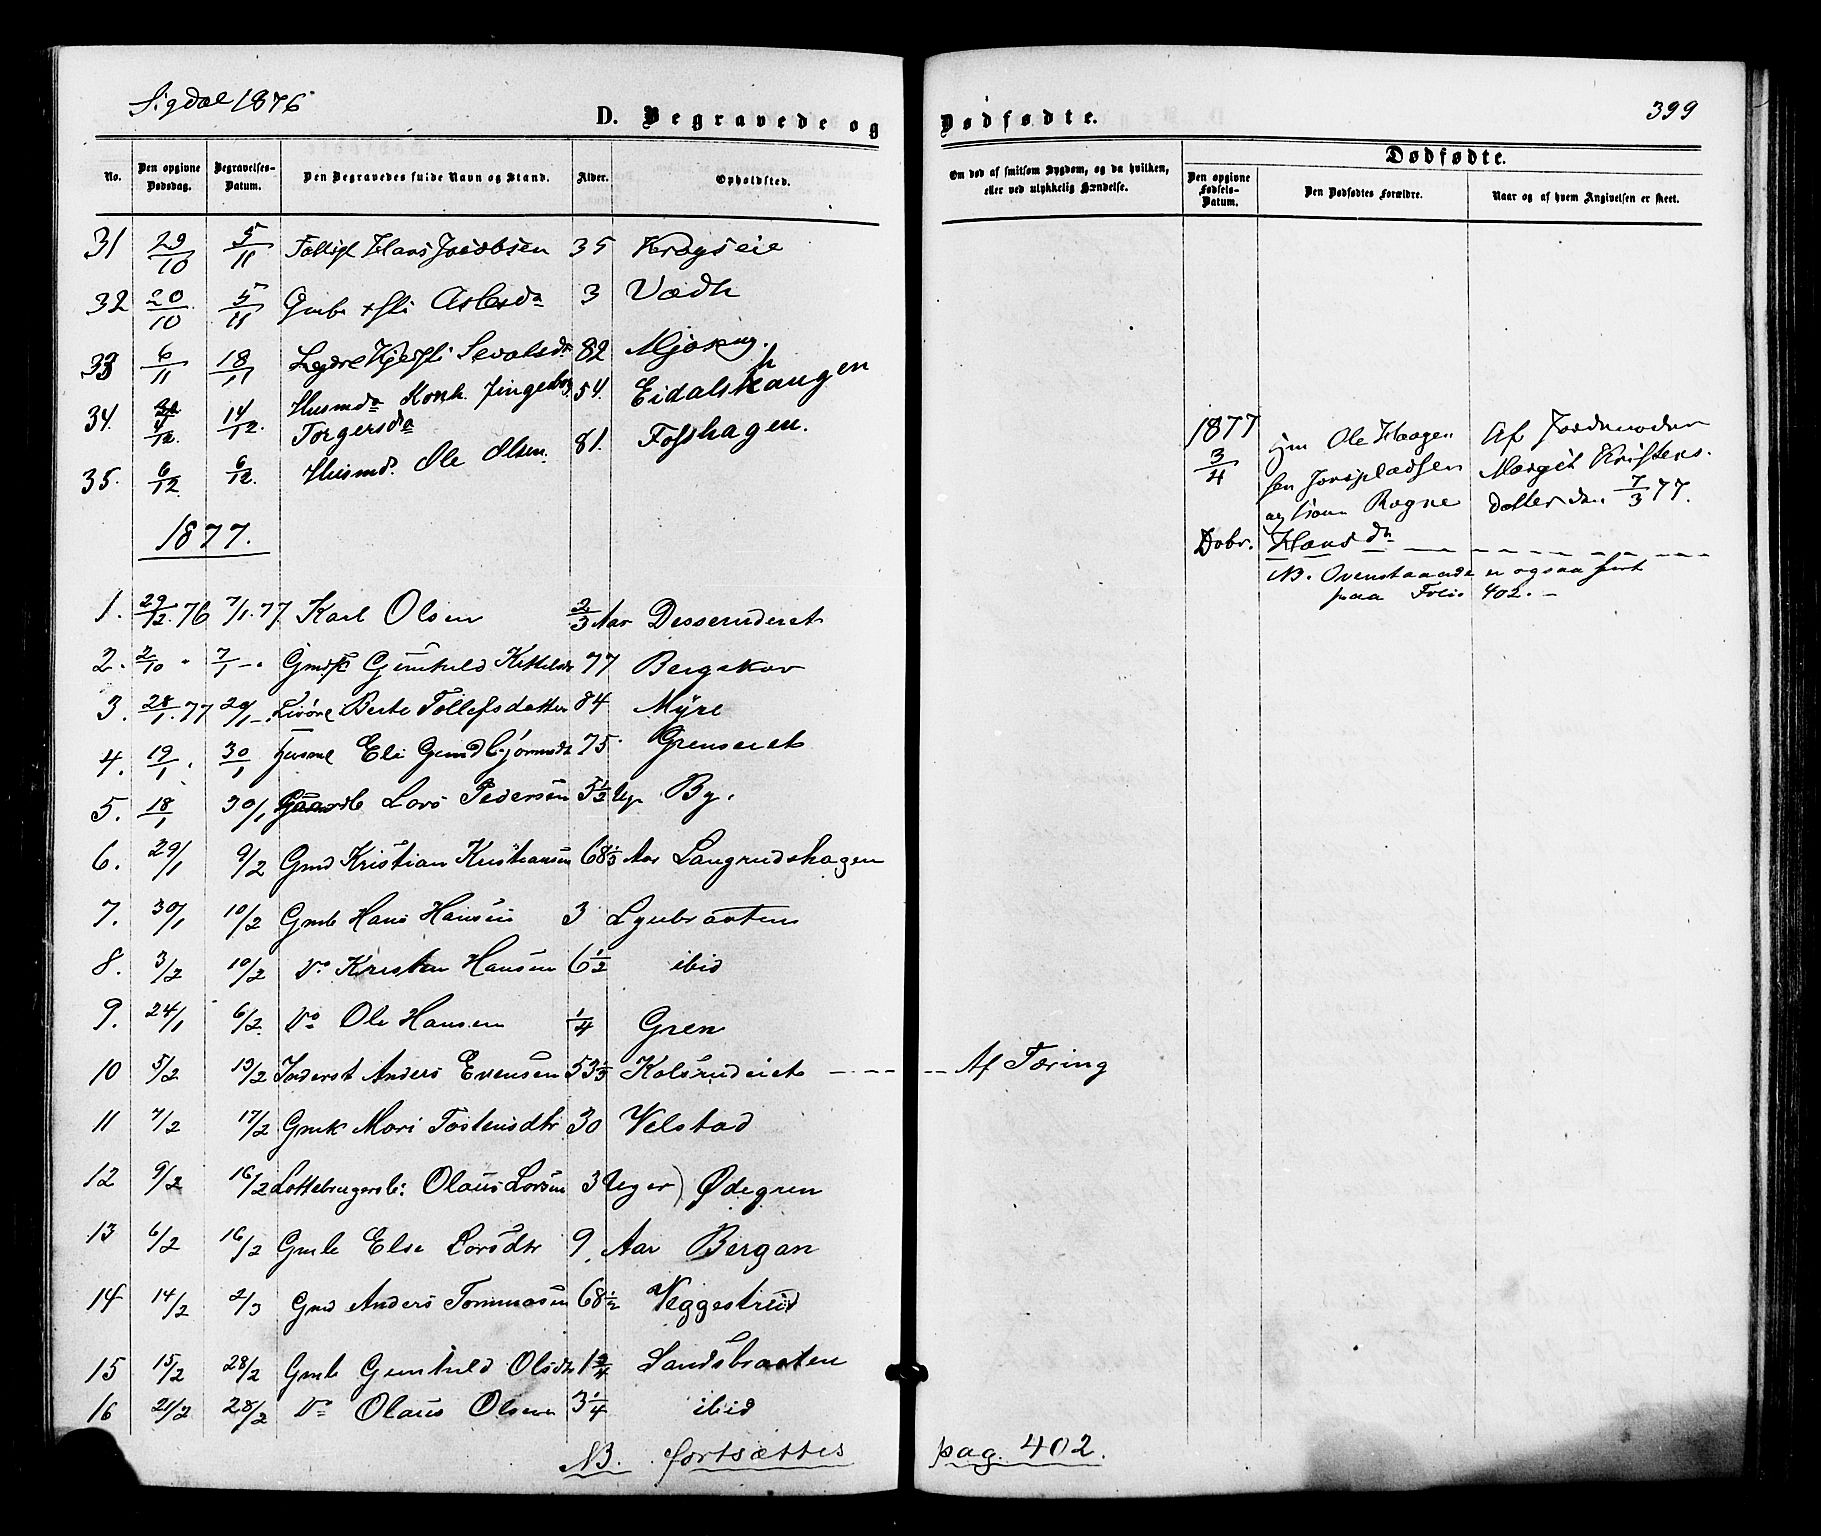 Sigdal 1876
D. Begravede og
No.
Den opgivne Dødsdag.
Begravelses-Datum.
Den Begravedes fulde Navn og Stand.
Alder.
Opholdsted.
31 29/10 5/11 Hans Jacobsen 35 Krogseie
32 20/10 5/11 3
33 6/11 18/11 Sevalsdr 82
34. 14/12. Husmd Konk. Ingeborg 54. Eidalshaugen
Torgersda
35. 6/12 6/12. Husmd. Ole Olsen. 81. Fosshagen.
1877.
1. 29/12.76 7/1.77 Karl Olsen 2/3 Aar Desserudeiet
2. 2/10 " 7/1 -" Gunhild Kittelsdr 77 Bergskov
3. 28/1.77 29/1- Berte Tollefsdatter 84 Myre
4. 19/1 " 30/1 Eli Gundbjørnsdt 75 Grenseiet
5. 18/1 30/1 Lars Pedersen 3 1/2 Ug. By.
6. 29/1 9/2 Gmd Kristian Kristiansen 68 1/3 Aar Langrudshagen
7. 30/1 10/2 Gmb Hans Hansen 3 Lyubraaten
8. 3/2 10/2 Do Kristen Hansen 6 1/2 ibid
9. 24/1 6/2. Do Ole Hansen 1/4 Gren
10 5/2 13/2 Inderst Anders Evensen 53 1/3 Kolsrudeiet - - -
11 7/2 17/2 Gmk Mari Tostensdtr. 30 Velstad
12 9/2 16/2 Olaus Larsen 3 Uger) Ødegren
13 6/2 16/2 Gmb Else Larsdtr 9 Aar Bergan
14 14/2 2/3 Gmd Anders Tommasen 68 1/2 Veggesrud
15 15/2 28/2 Gmb Gunhild Olsdtr 1 3/4 Landsbraaten
16 21/2 28/2 Do Olaus Olsen 3 1/4 ibid
NB. fortsættes
399
Dødfødte.
Om død af smitsom Sygdom, og da hvilken,
eller ved ulykkelig Hændelse.
Dødfødte.
Den opgivne Fødsels-Datum.
Den Dødfødtes Forældre.
Naar og af hvem Angivelsen er skeet.
1877 Ole Haagen Af Jordmoder
3/4 sen Jonspladsen Margit Kristens.
og Kone Ragne datter den 7/3 77.
Dobr. Hansdr - - - - - - -
NB. Ovenstaaende er ogsaa ført
paa Folio 402. -
- - - Af Tæring
pag. 402.